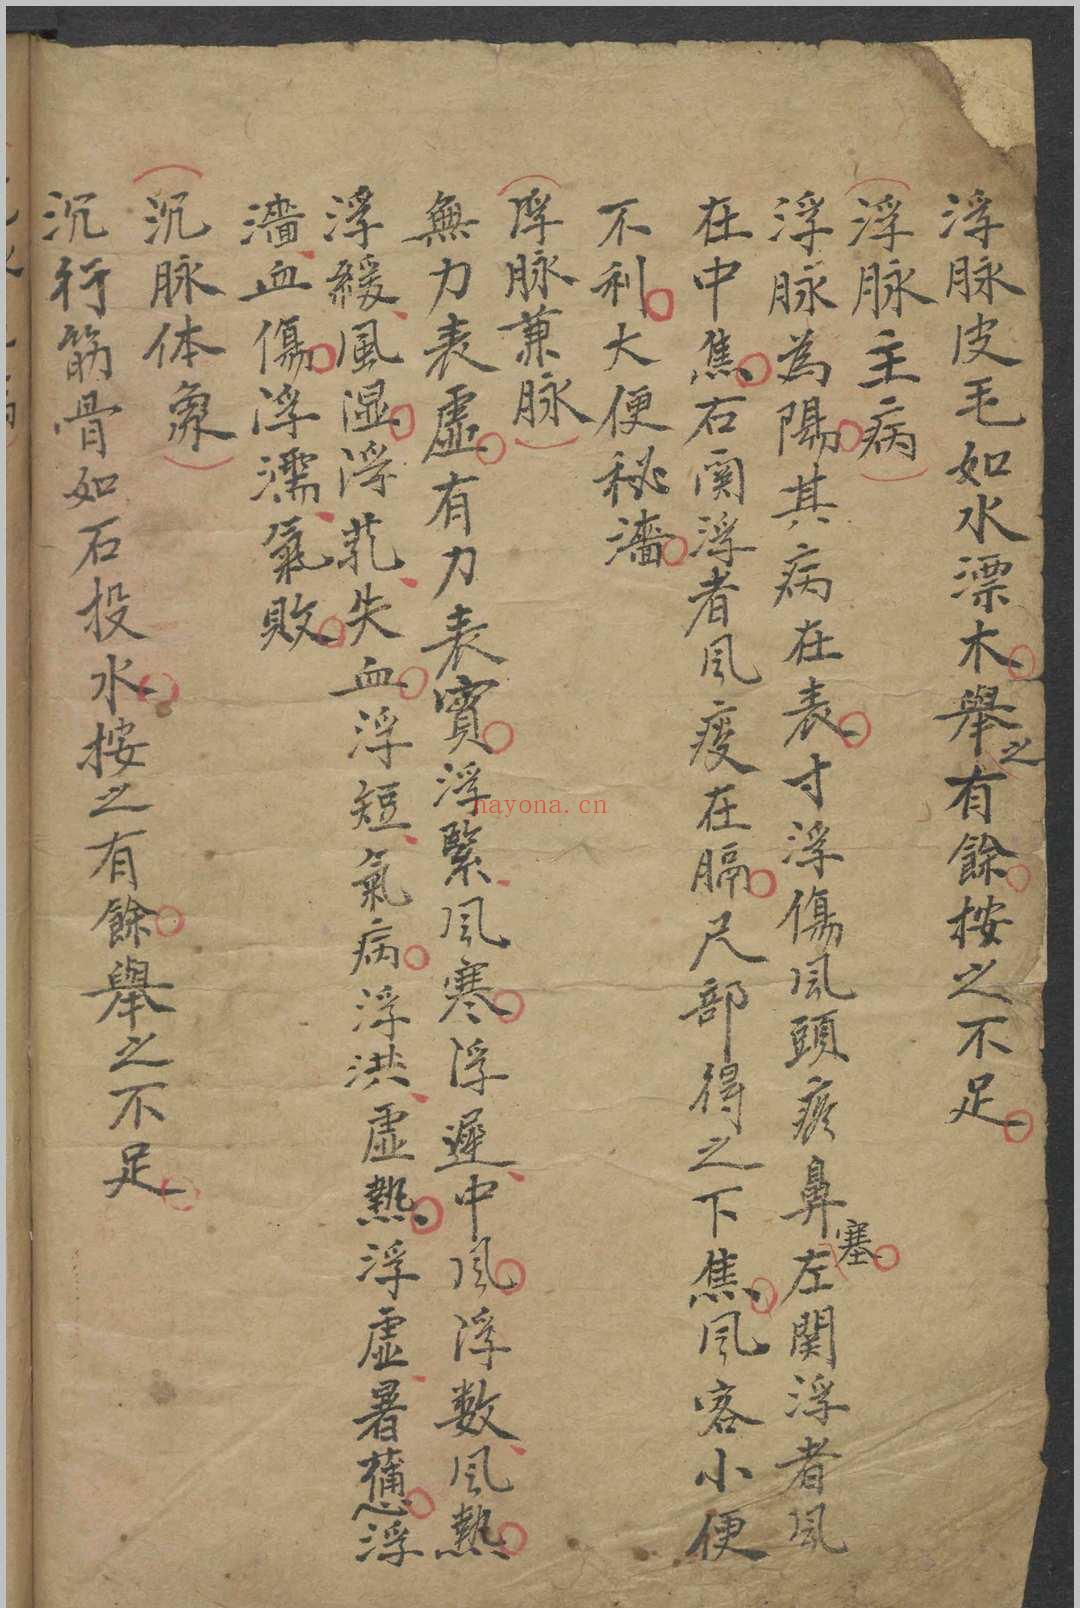 浮脉皮毛如水漂木舉之有餘按之不足
浮脉主病
浮脉為陽其病在表寸浮傷風頭疼鼻塞左関浮者風
在中焦右関浮者風痰在膈尺部得之下焦風客小便
不利大便秘濇
浮脉兼脉
無力表虛有力表實浮緊風寒浮遲中風浮数風熱
浮緩風湿浮芤失血浮短氣病浮洪虛熱浮虛暑憊浮
濇血傷浮濡氣敗
沉脉体象
沉行筋骨如石投水按之有餘舉之不足
nayona.cn